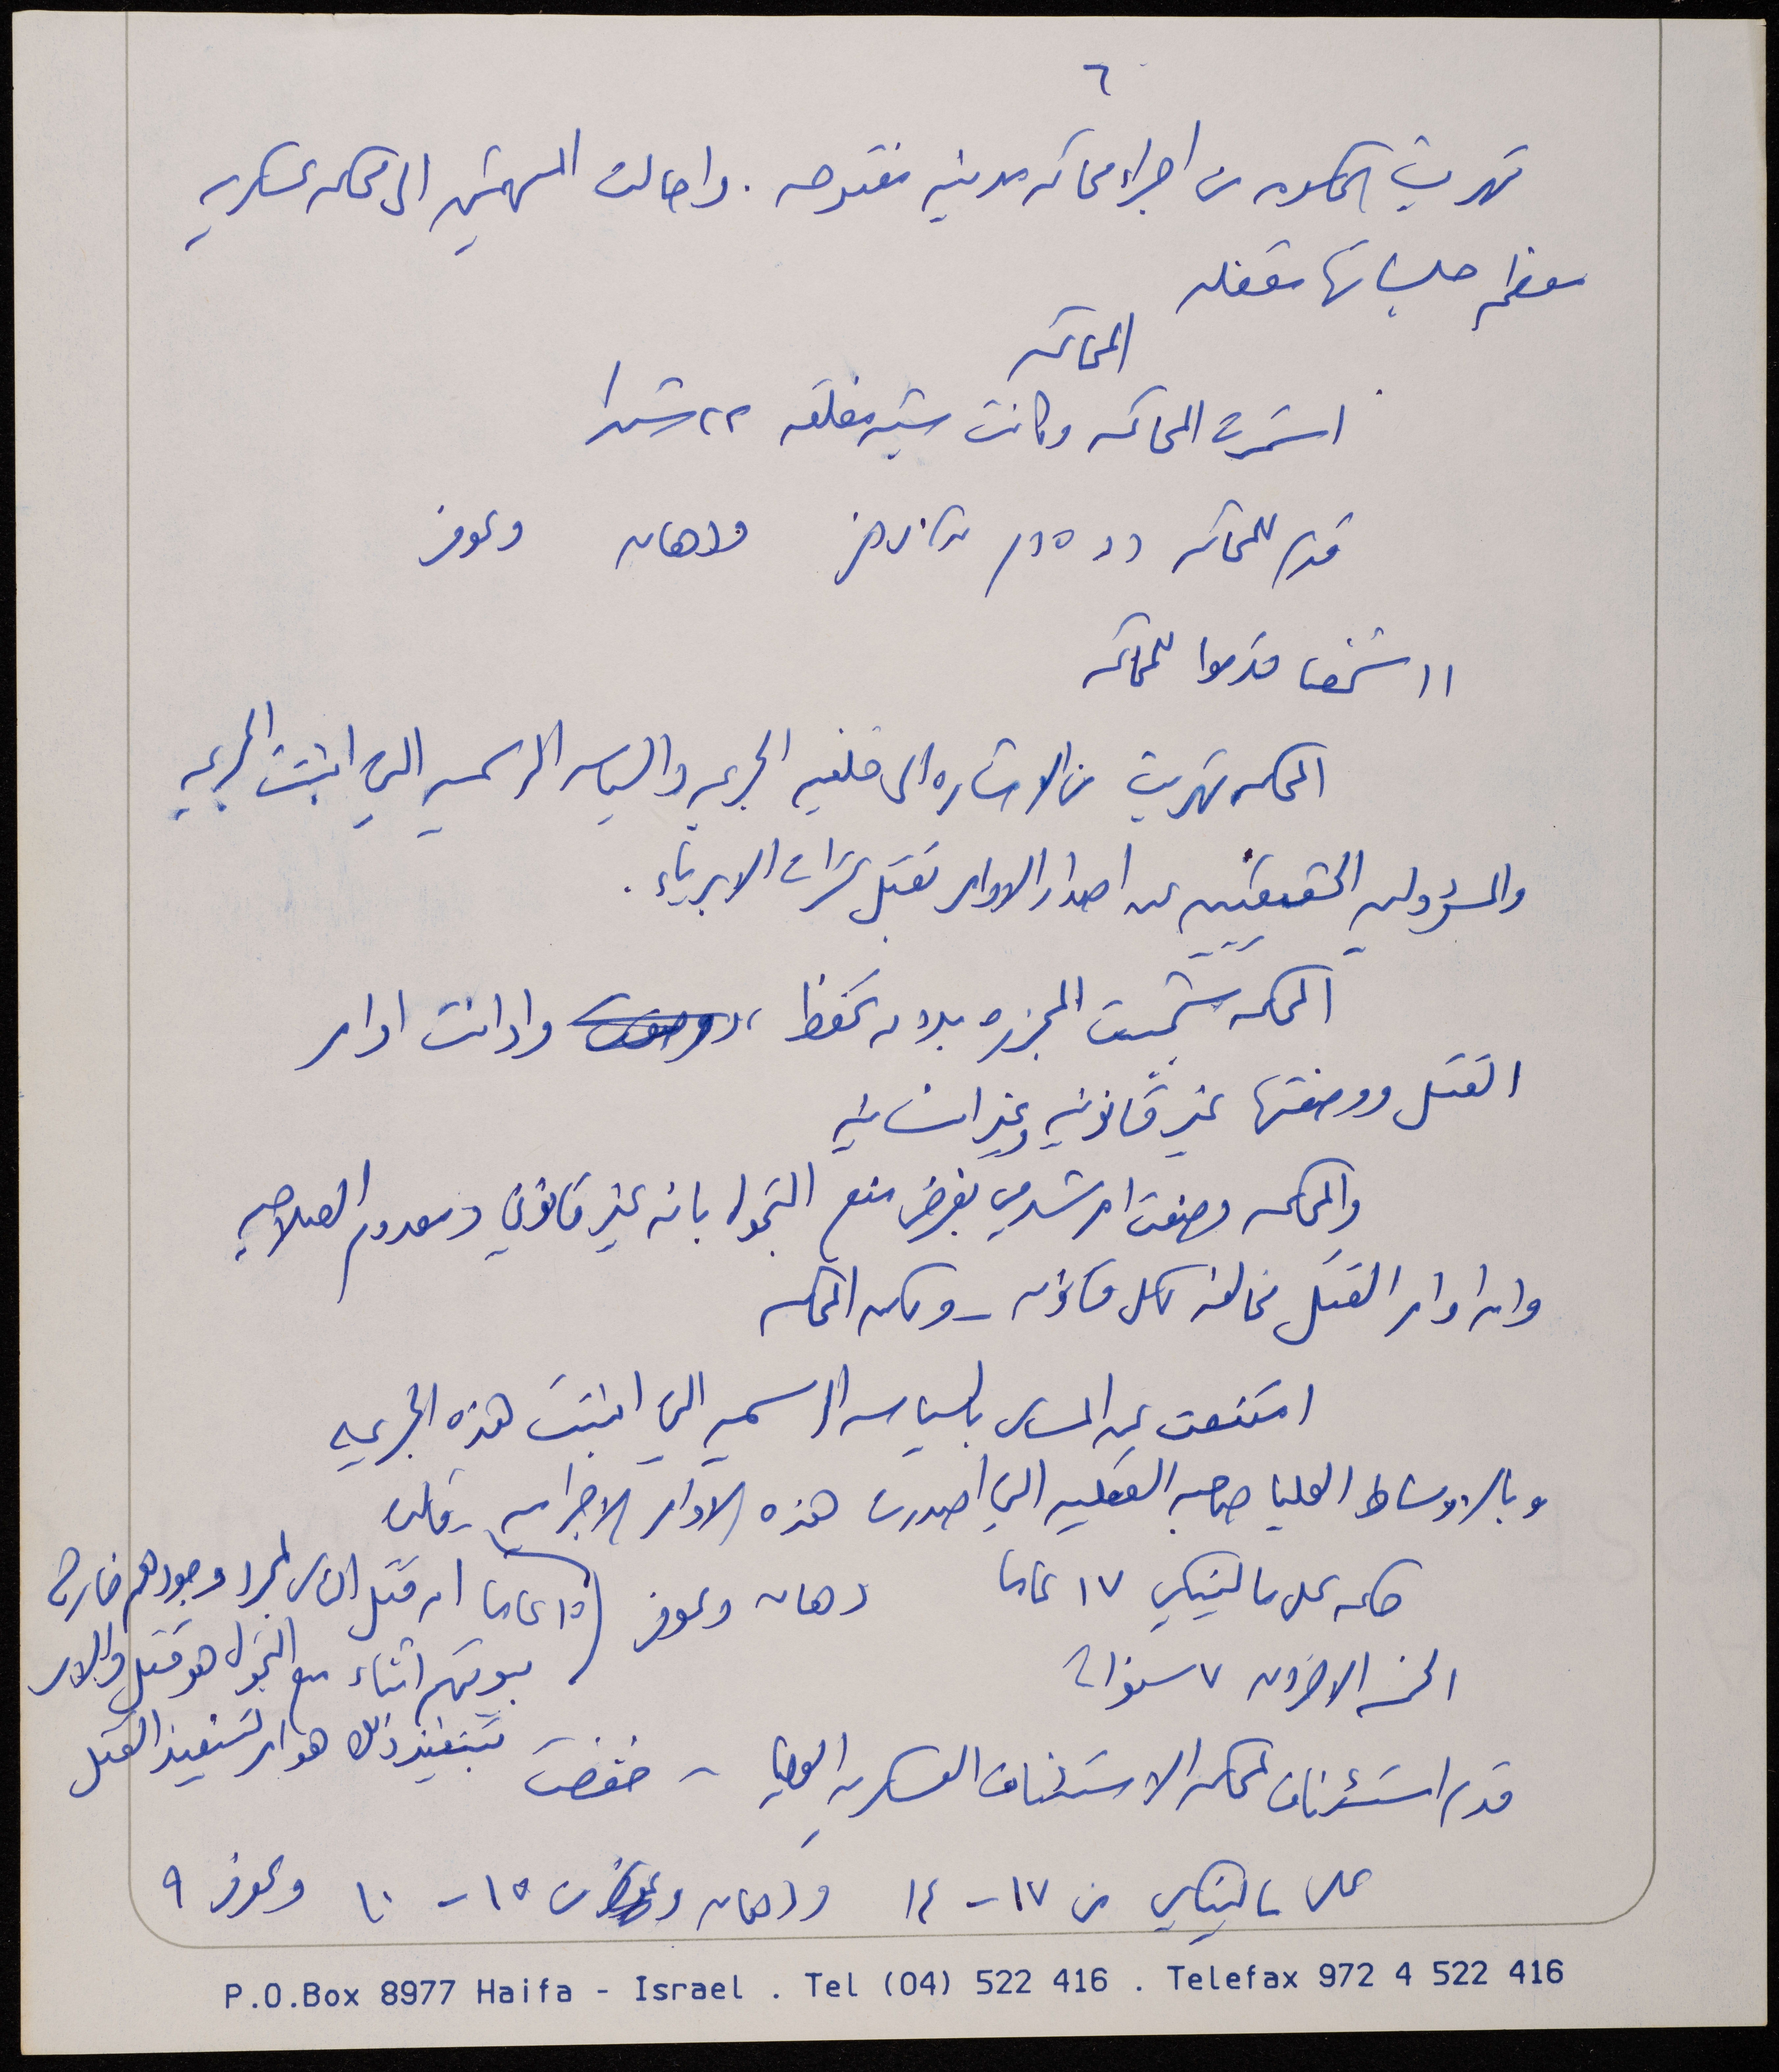 ٦
تهربت الحكومه من اجراء محاكمه مدنيه مفتوحه . واحالت المتهمين الى محكمه عسكريه
معظم جلساتها مقفله
المحاكمه
استمرت المحاكمه وكانت شبه مغلقه ٢٢ شهرا
قدم للمحاكمه ودهان وعوفر
١١ شخصا قدموا للمحاكمه
المحكمه تهربت من الاشاره الى خلفيه الجريمه والسياسه الرسميه التي انبتت الجريمه
والمسؤولين الحقيقيين عن اصدار الاوامر بقتل عشرات الابرياء .
المحكمه شجبت المجزره بدون تحفظ ، وادانت اوامر
القتل ووصفتها غير قانونيه وغير انسانيه
والمحكمه وصفت امر شدمي بفرض منع التجول بانه غير قانوني ومعدوم الصلاحيه
وان اوامر القتل مخالفه لكل قانون - ولكن المحكمه
امتنعت عن المساس بالسياسه الرسميه التي انبتت هذه الجريمه
وبالاوساط العليا صاحبه العقليه التي اصدرت هذه الاوامر الاجراميه - قالت
حكم على مالينكي ١٧ عاما دهان وعوفر ١٥ عاما ان قتل الناس لمجرد وجودهم خارج
الاخرون ٧ سنوات بيوتهم اثناء منع التجول هو قتل والامر
بتنفيذ ذلك هو امر لتنفيذ القتل
قدم استئناف لمحكمه الاستئناف العسكريه العليا - خفضت
على مالينكي من ١٧ - ١٤ ودهان من ١٥ - ١٠ وعوفر ٩
P.O.Box 8977 Haifa - Israel . Tel (04) 522 416 . Telefax 972 4 522 416